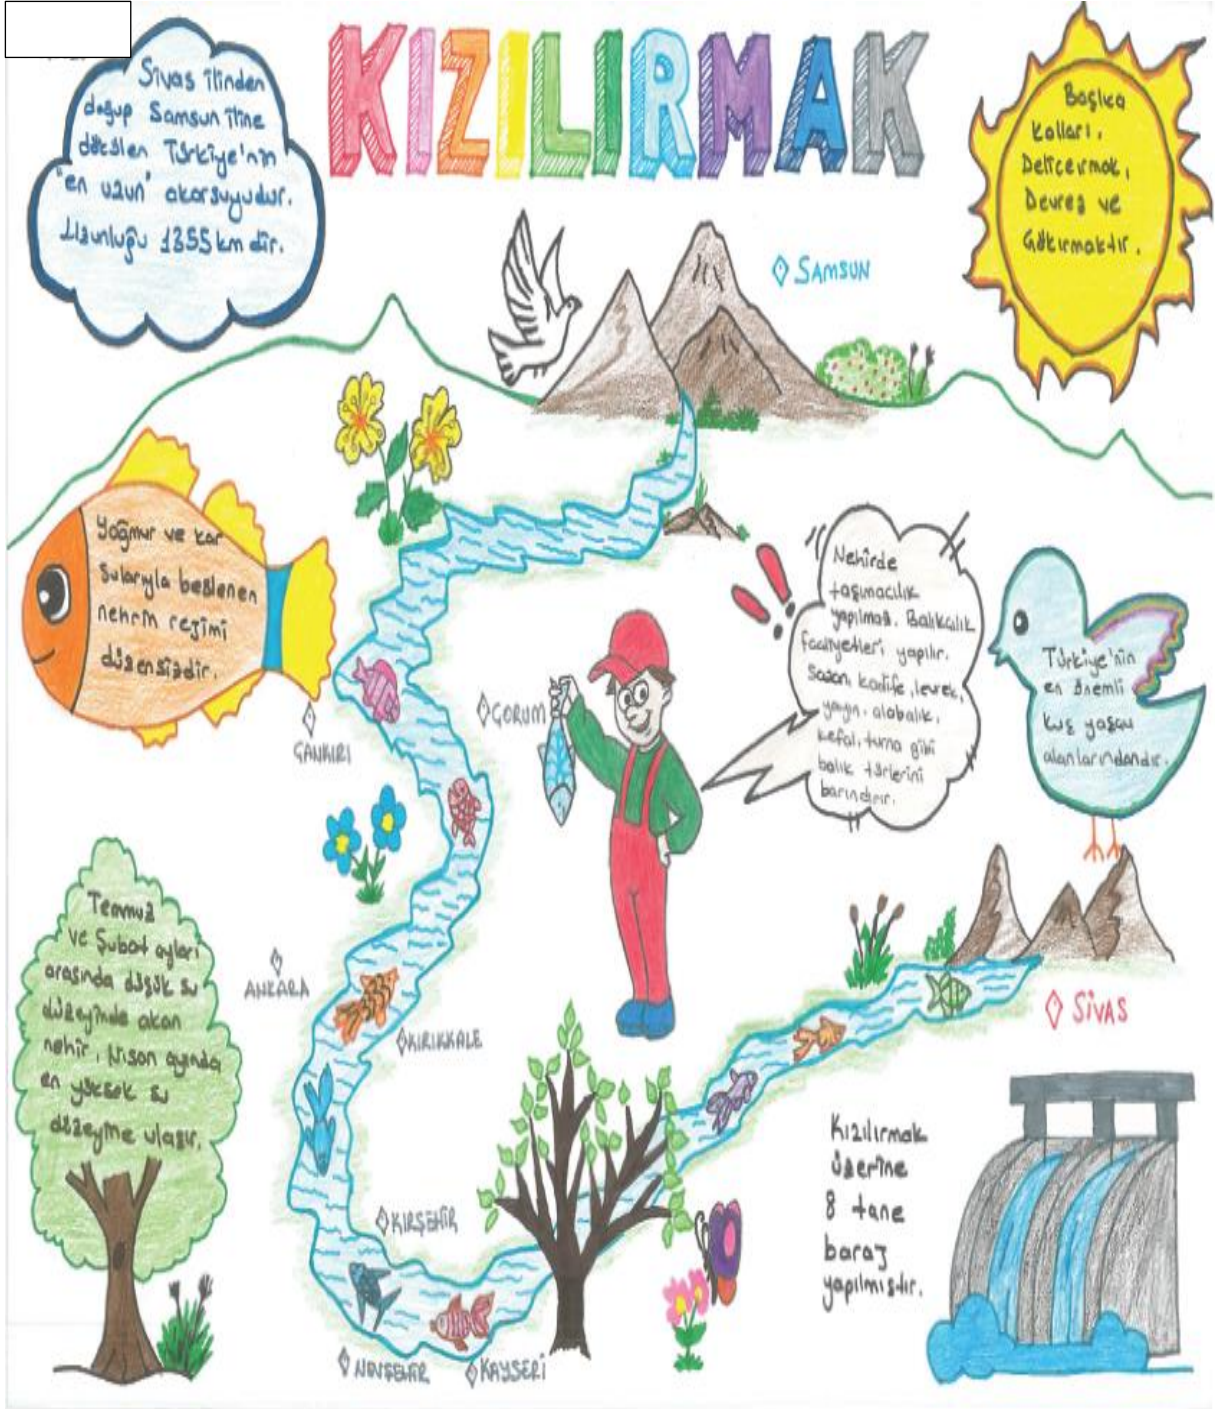 KIZILIRMAK
Sivas ilinden
doğup Samsun iline
dökülen Türkiye'nin
"en uzun" akarsuyudur.
Uzunluğu 1355 km dir.
Başlıca
kolları,
Delicermak,
Devrez ve
Gökırmaktır.
SAMSUN
Yağmur ve kar
sularıyla beslenen
nehrin rejimi
düzensizdir.
Nehirde
taşımacılık
yapılmaz. Balıkçılık
faaliyetleri yapılır.
Sazan, kadife, levrek,
yayın, alabalık,
kefal, turna gibi
balık türlerini
barındırır.
Türkiye'nin
en önemli
kuş yaşam
alanlarındandır.
ÇANKIRI
ÇORUM
Temmuz
ve Şubat ayları
arasında düşük su
düzeyinde akan
nehir, Nisan ayında
en yüksek su
düzeyine ulaşır.
ANKARA
KIRIKKALE
SİVAS
KIRŞEHİR
NEVŞEHİR
KAYSERİ
Kızılırmak
üzerine
8 tane
baraj
yapılmıştır.